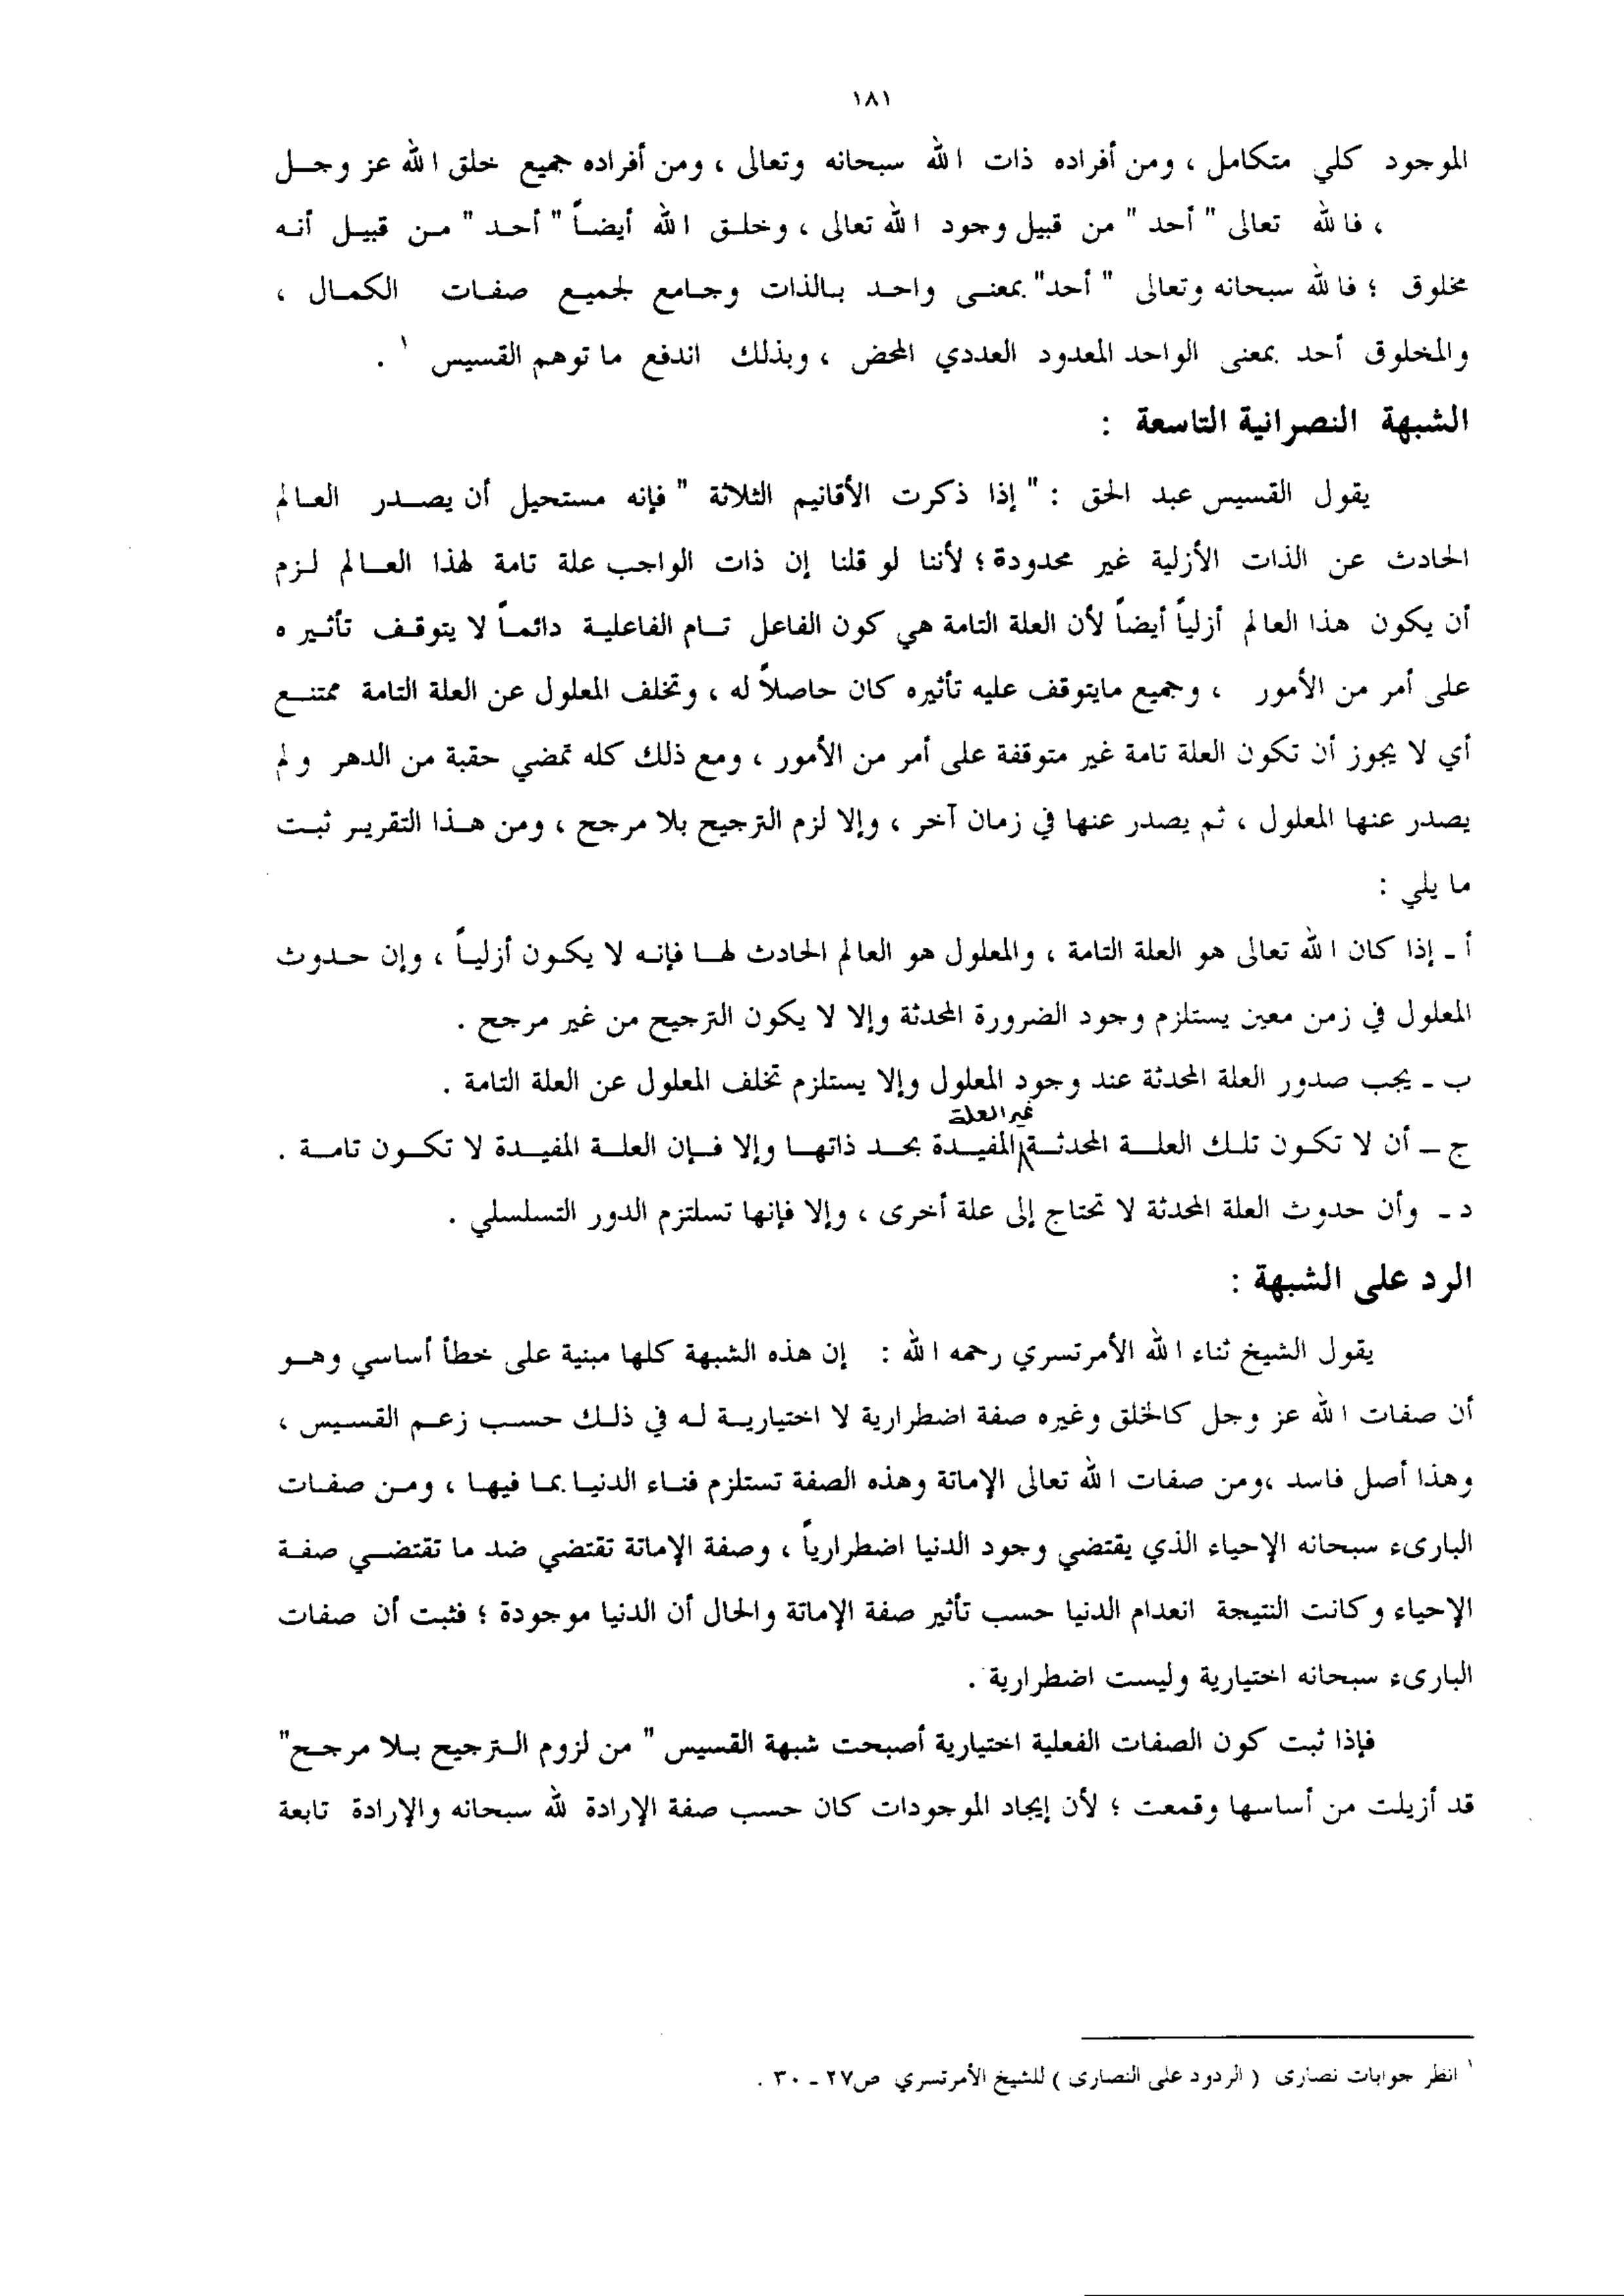 ١٨١
الموجود كلي متكامل ، ومن أفراده ذات الله سبحانه وتعالى ، ومن أفراده جميع خلق الله عز وجـل
، فالله تعالى " أحد " من قبيل وجود الله تعالى ، وخلـق الله أيضـاً " أحـد " مـن قبيـل أنـه
مخلوق ؛ فالله سبحانه وتعالى " أحد" بمعنـى واحـد بـالذات وجـامع لجميـع صفـات الكمـال ،
والمخلوق أحد بمعنى الواحد المعدود العددي المحض ، وبذلك اندفع ما توهم القسيس ١ .
الشبهة النصرانية التاسعة :
يقول القسيس عبد الحق : " إذا ذكرت الأقانيم الثلاثة " فإنه مستحيل أن يصـدر العـالم
الحادث عن الذات الأزلية غير محدودة ؛ لأننا لو قلنا إن ذات الواجب علة تامة لهذا العـالم لـزم
أن يكون هذا العالم أزلياً أيضاً لأن العلة التامة هي كون الفاعل تـام الفاعليـة دائمـاً لا يتوقـف تأثـيره
على أمر من الأمور ، وجميع مايتوقف عليه تأثيره كان حاصلاً له ، وتخلف المعلول عن العلة التامة ممتنـع
أي لا يجوز أن تكون العلة تامة غير متوقفة على أمر من الأمور ، ومع ذلك كله تمضي حقبة من الدهر ولم
يصدر عنها المعلول ، ثم يصدر عنها في زمان آخر ، وإلا لزم الترجيح بلا مرجح ، ومن هـذا التقريـر ثبـت
ما يلي :
أ ـ إذا كان الله تعالى هو العلة التامة ، والمعلول هو العالم الحادث لهـا فإنـه لا يكـون أزليـاً ، وإن حـدوث
المعلول في زمن معين يستلزم وجود الضرورة المحدثة وإلا لا يكون الترجيح من غير مرجح .
ب ـ يجب صدور العلة المحدثة عند وجود المعلول وإلا يستلزم تخلف المعلول عن العلة التامة .
غير العلة
ج ـ أن لا تكـون تلـك العلـة المحدثـة المفيـدة بحـد ذاتهـا وإلا فـإن العلـة المفيـدة لا تكـون تامـة .
د ـ وأن حدوث العلة المحدثة لا تحتاج إلى علة أخرى ، وإلا فإنها تسلتزم الدور التسلسلي .
الرد على الشبهة :
يقول الشيخ ثناء الله الأمرتسري رحمه الله : إن هذه الشبهة كلها مبنية على خطأ أساسي وهـو
أن صفات الله عز وجل كالخلق وغيره صفة اضطرارية لا اختياريـة لـه في ذلـك حسـب زعـم القسـيس ،
وهذا أصل فاسد ،ومن صفات الله تعالى الإماتة وهذه الصفة تستلزم فنـاء الدنيـا بمـا فيهـا ، ومـن صفـات
البارىء سبحانه الإحياء الذي يقتضي وجود الدنيا اضطرارياً ، وصفة الإماتة تقتضي ضد ما تقتضـي صفـة
الإحياء وكانت النتيجة انعدام الدنيا حسب تأثير صفة الإماتة والحال أن الدنيا موجودة ؛ فثبت أن صفات
البارىء سبحانه اختيارية وليست اضطرارية .
فإذا ثبت كون الصفات الفعلية اختيارية أصبحت شبهة القسيس " من لزوم الـترجيح بـلا مرجـح"
قد أزيلت من أساسها وقمعت ؛ لأن إيجاد الموجودات كان حسب صفة الإرادة لله سبحانه والإرادة تابعة
١ انظر جوابات نصارى ( الردود على النصارى ) للشيخ الأمرتسري ص٢٧ ـ ٣٠ .